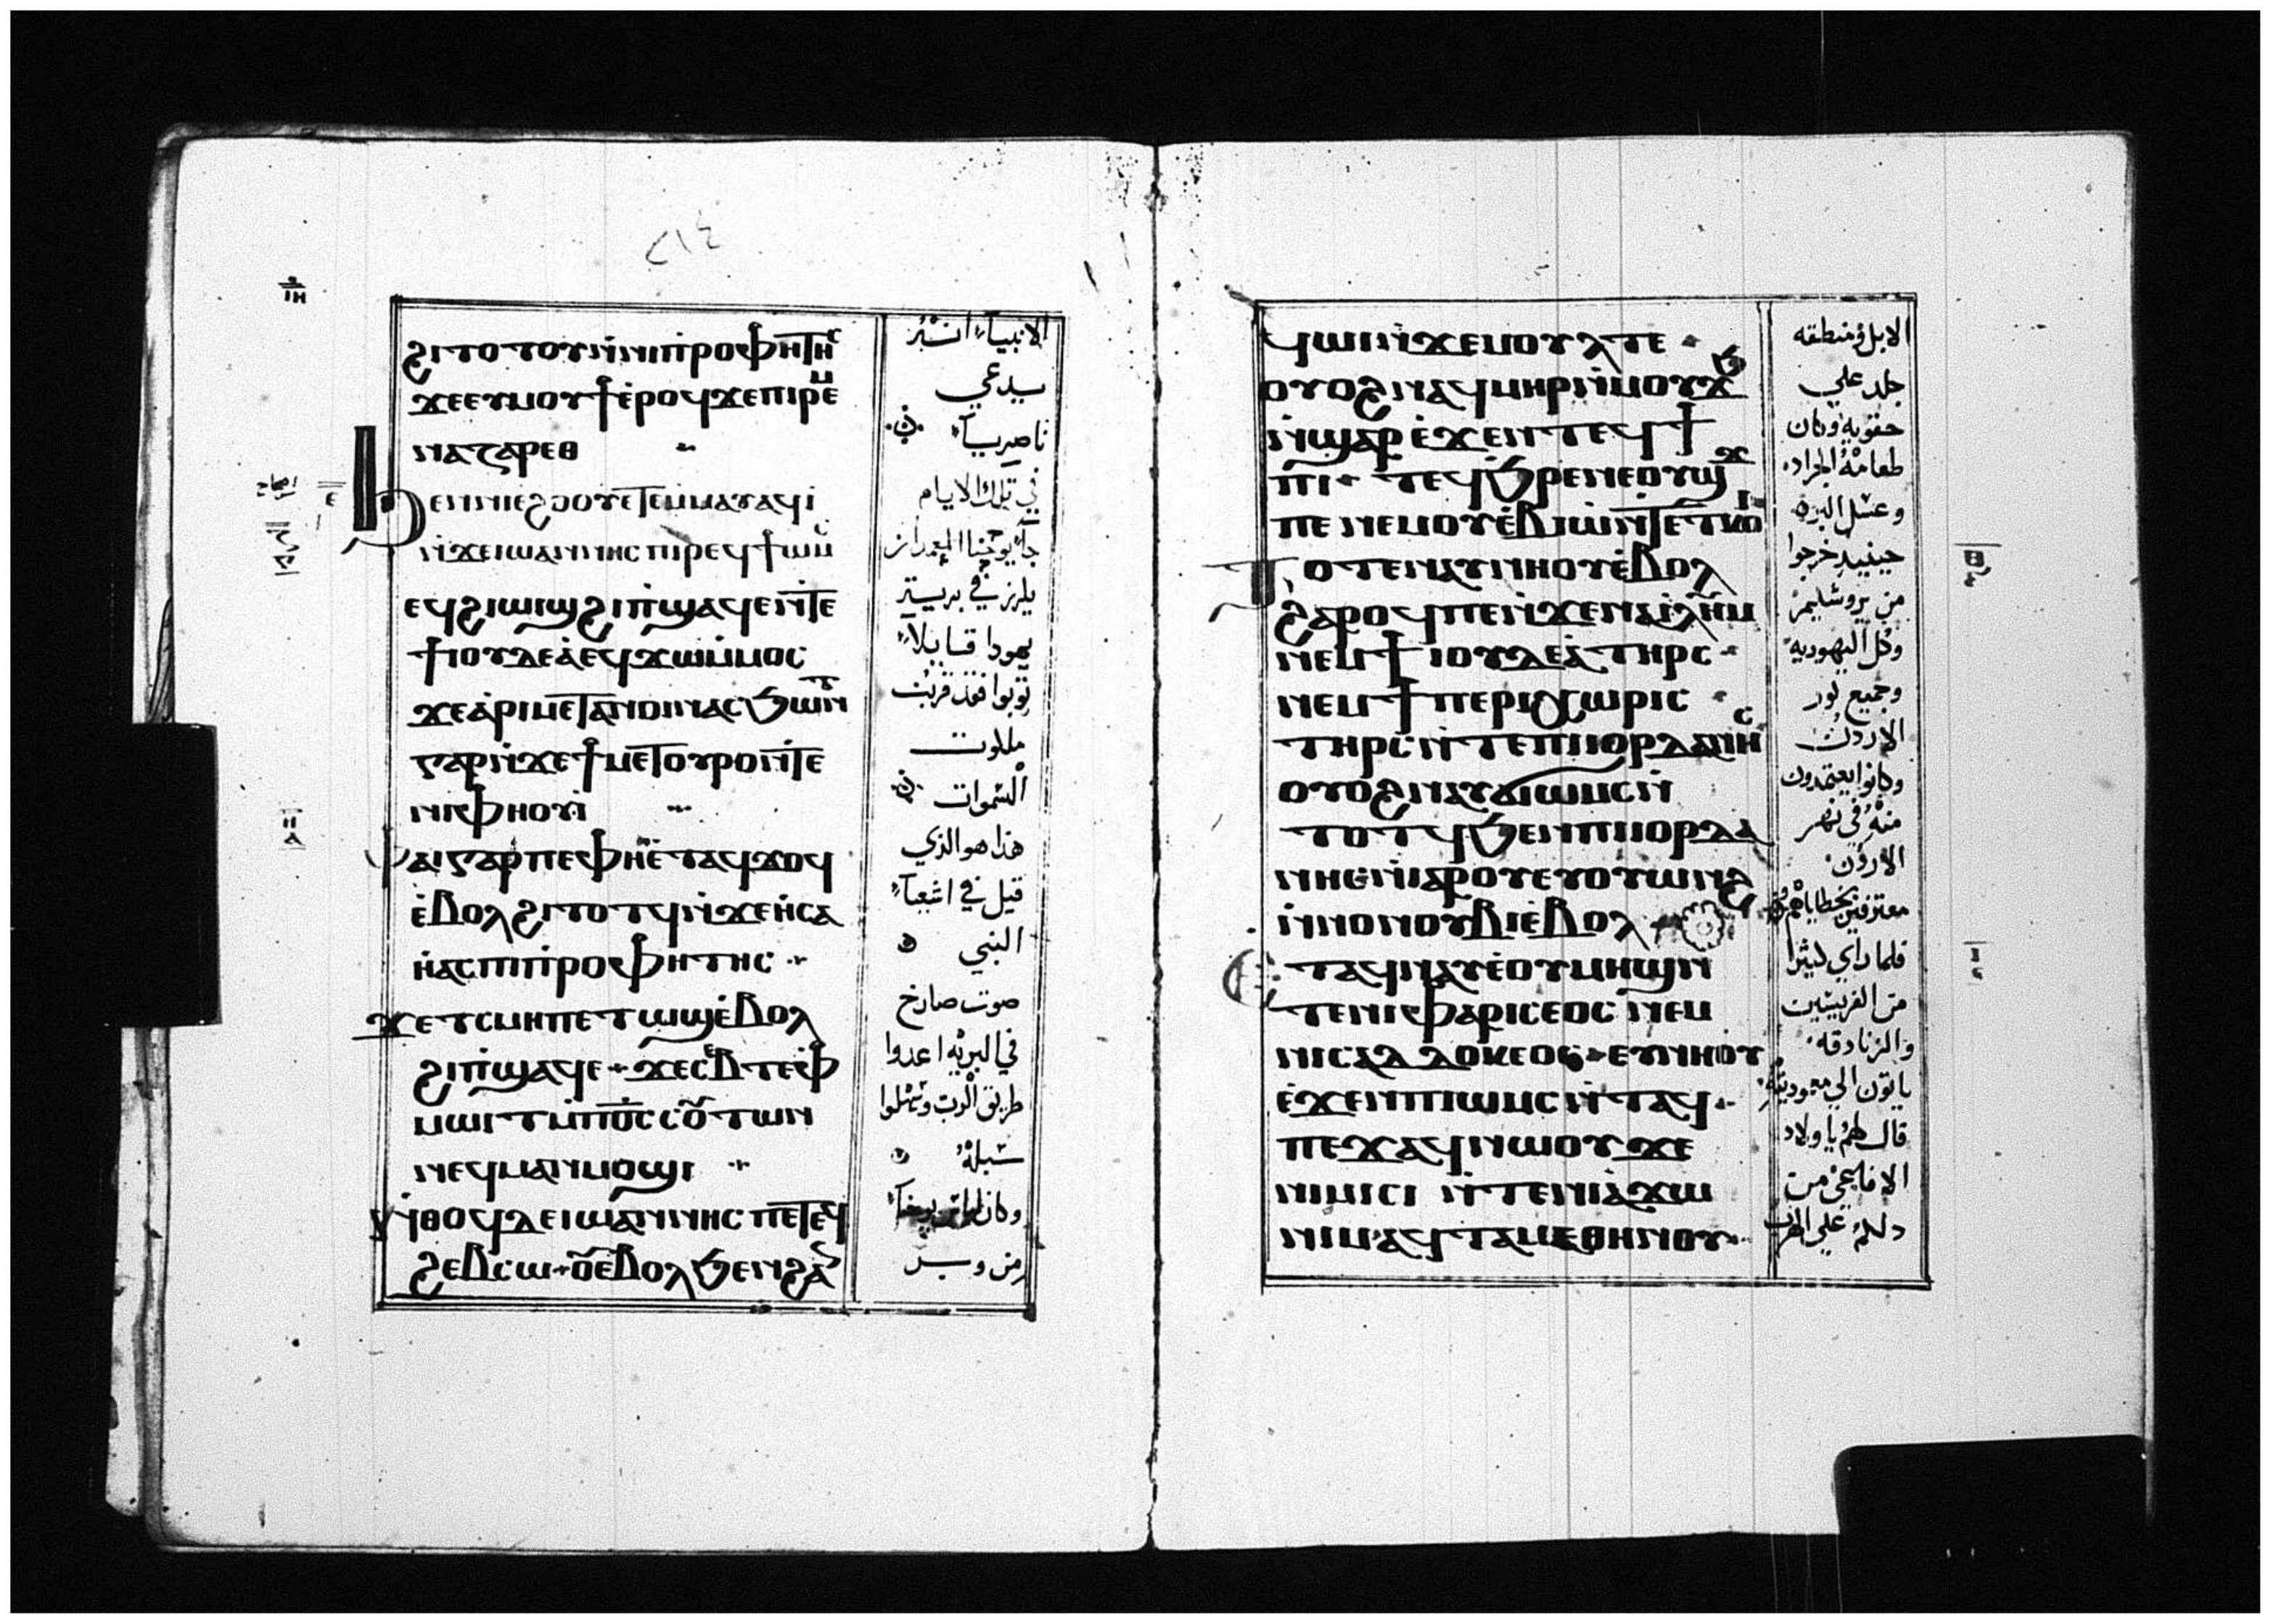 ϩⲓⲧⲟⲧⲟⲩⲛ̀ⲛⲓⲡ̀ⲣⲟⲫⲏⲧⲏⲥ
ϫⲉⲉⲩⲙⲟⲩϯⲉ̀ⲣⲟϥϫⲉⲡⲓⲣⲉⲙ
ⲛⲁⲍⲁⲣⲉⲑ
ϧⲉⲛⲛⲓⲉϩⲟⲟⲩⲉⲧⲉⲙ̀ⲙⲁⲩⲁϥⲓ̀
ⲛ̀ϫⲉⲓⲱⲁⲛⲛⲏⲥⲡⲓⲣⲉϥϯⲱⲙⲥ
ⲉϥϩⲓⲱⲓϣϩⲓⲡ̀ϣⲁϥⲉⲛ̀ⲧⲉ
ϯⲓⲟⲩⲇⲉⲁ̀ⲉϥϫⲱⲙ̀ⲙⲟⲥ
ϫⲉⲁ̀ⲣⲓⲙⲉⲧⲁⲛⲟⲓⲛⲁⲥϧⲱⲛⲧ
ⲅⲁⲣⲛ̀ϫⲉϯⲙⲉⲧⲟⲩⲣⲟⲛ̀ⲧⲉ
ⲛⲓⲫⲏⲟⲩⲓ̀
ⲫⲁⲓⲅⲁⲣⲡⲉⲫⲏⲉ̀ⲧⲁϥϫⲟϥ
ⲉ̀ⲃⲟⲗϩⲓⲧⲟⲧϥⲛ̀ϫⲉⲏ̀ⲥⲁ
ⲏ̀ⲁⲥⲡⲓⲡ̀ⲣⲟⲫⲏⲧⲏⲥ
ϫⲉⲧⲥⲙⲏⲡⲉⲧⲱϣⲉ̀ⲃⲟⲗ
ϩⲓⲡ̀ϣⲁϥⲉ ϫⲉⲥⲉⲃⲧⲉⲫ
ⲙⲱⲓⲧⲙ̀ⲡⲟ̅ⲥ̅ⲥⲟⲩⲧⲱⲛ
ⲛⲉϥⲙⲁⲛⲙⲟϣⲓ
ⲛ̀ⲑⲟϥⲇⲉⲓⲱⲁⲛⲛⲏⲥⲡⲉⲧⲉϥ
ϩⲉⲃⲥⲱ ⲟⲩⲉ̀ⲃⲟⲗϧⲉⲛϩⲁ
الانبيآء انه
سيدعي
ناصريآ
في تلك الايام
جآ يوحنا المعمدان
يكرز في برية
يهودا قايلاً
توبوا فقد قربت
ملكوت
السموات
هذا هو الذي
قيل في اشعيآ
النبي
صوت صارخ
في البريه اعدوا
طريق الرب وسهلوا
سبله
وكان لباس يوحنا
من وبر
ϥⲱⲓⲛ̀ϫⲉⲙⲟⲩⲗⲧⲉ
ⲟⲩⲟϩⲛⲁϥⲙⲏⲣⲛ̀ⲙⲟⲩϫϧ
ⲛ̀ϣⲁⲣⲉ̀ϫⲉⲛⲧⲉϥϯ
ⲡⲓ ⲧⲉϥϧⲣⲉⲛⲉⲟⲩϣϫ
ⲡⲉⲛⲉⲙⲟⲩⲉ̀ⲃⲓⲱⲛ̀ⲧⲉⲧⲕⲟⲓ
ⲧⲟⲧⲉⲛⲁⲩⲛⲏⲟⲩⲉ̀ⲃⲟⲗ
ϩⲁⲣⲟϥⲡⲉⲛ̀ϫⲉⲛⲁⲓ̀ⲗⲏⲙ
ⲛⲉⲙϯⲓⲟⲩⲇⲉⲁ̀ⲧⲏⲣⲥ
ⲛⲉⲙϯⲡⲉⲣⲓⲭⲱⲣⲓⲥ
ⲧⲏⲣⲥⲛ̀ⲧⲉⲡⲓⲓⲟⲣⲇⲁⲛⲏⲥ
ⲟⲩⲟϩⲛⲁⲩϭⲓⲱⲙⲥⲛ̀
ⲧⲟⲧϥϧⲉⲛⲡⲓⲓⲟⲣⲇⲁ
ⲛⲏⲥⲛ̀ⲓⲁⲣⲟⲩⲉⲩⲟⲩⲱⲛϩ
ⲛ̀ⲛⲟⲩⲛⲟⲃⲓⲉ̀ⲃⲟⲗ
ⲉⲧⲁϥⲛⲁⲩⲉ̀ⲟⲩⲙⲏϣⲛ̀
ⲧⲉⲛⲓⲫⲁⲣⲓⲥⲉⲟⲥ ⲛⲉⲙ
ⲛⲓⲥⲁⲇⲇⲟⲕⲉⲟⲥ ⲉⲩⲛⲏⲟⲩ
ⲉ̀ϫⲉⲛⲡⲓⲱⲙⲥⲛ̀ⲧⲁϥ
ⲡⲉϫⲁϥⲛⲱⲟⲩϫⲉ
ⲛⲓⲙⲓⲥⲓ ⲛ̀ⲧⲉⲛⲓⲁ̀ϫⲱ
ⲛⲓⲙⲁϥⲧⲁⲙⲉⲑⲏⲛⲟⲩ
الابل ومنطقه
جلد علي
حقويه وكان
طعامه الجراد
وعسل البر
حينيد خرجوا
من يروشليم
وكل اليهوديه
وجميع كور
الاردن
وكانوا يعتمدون
منه في نهر
الاردن
معترفين بخطاياهم
فلما راي كثيرا
من الفريسيين
والزنادقه
ياتون الي معموديته
قال لهم يا ولاد
الافاعي من
دلكم علي الهرب